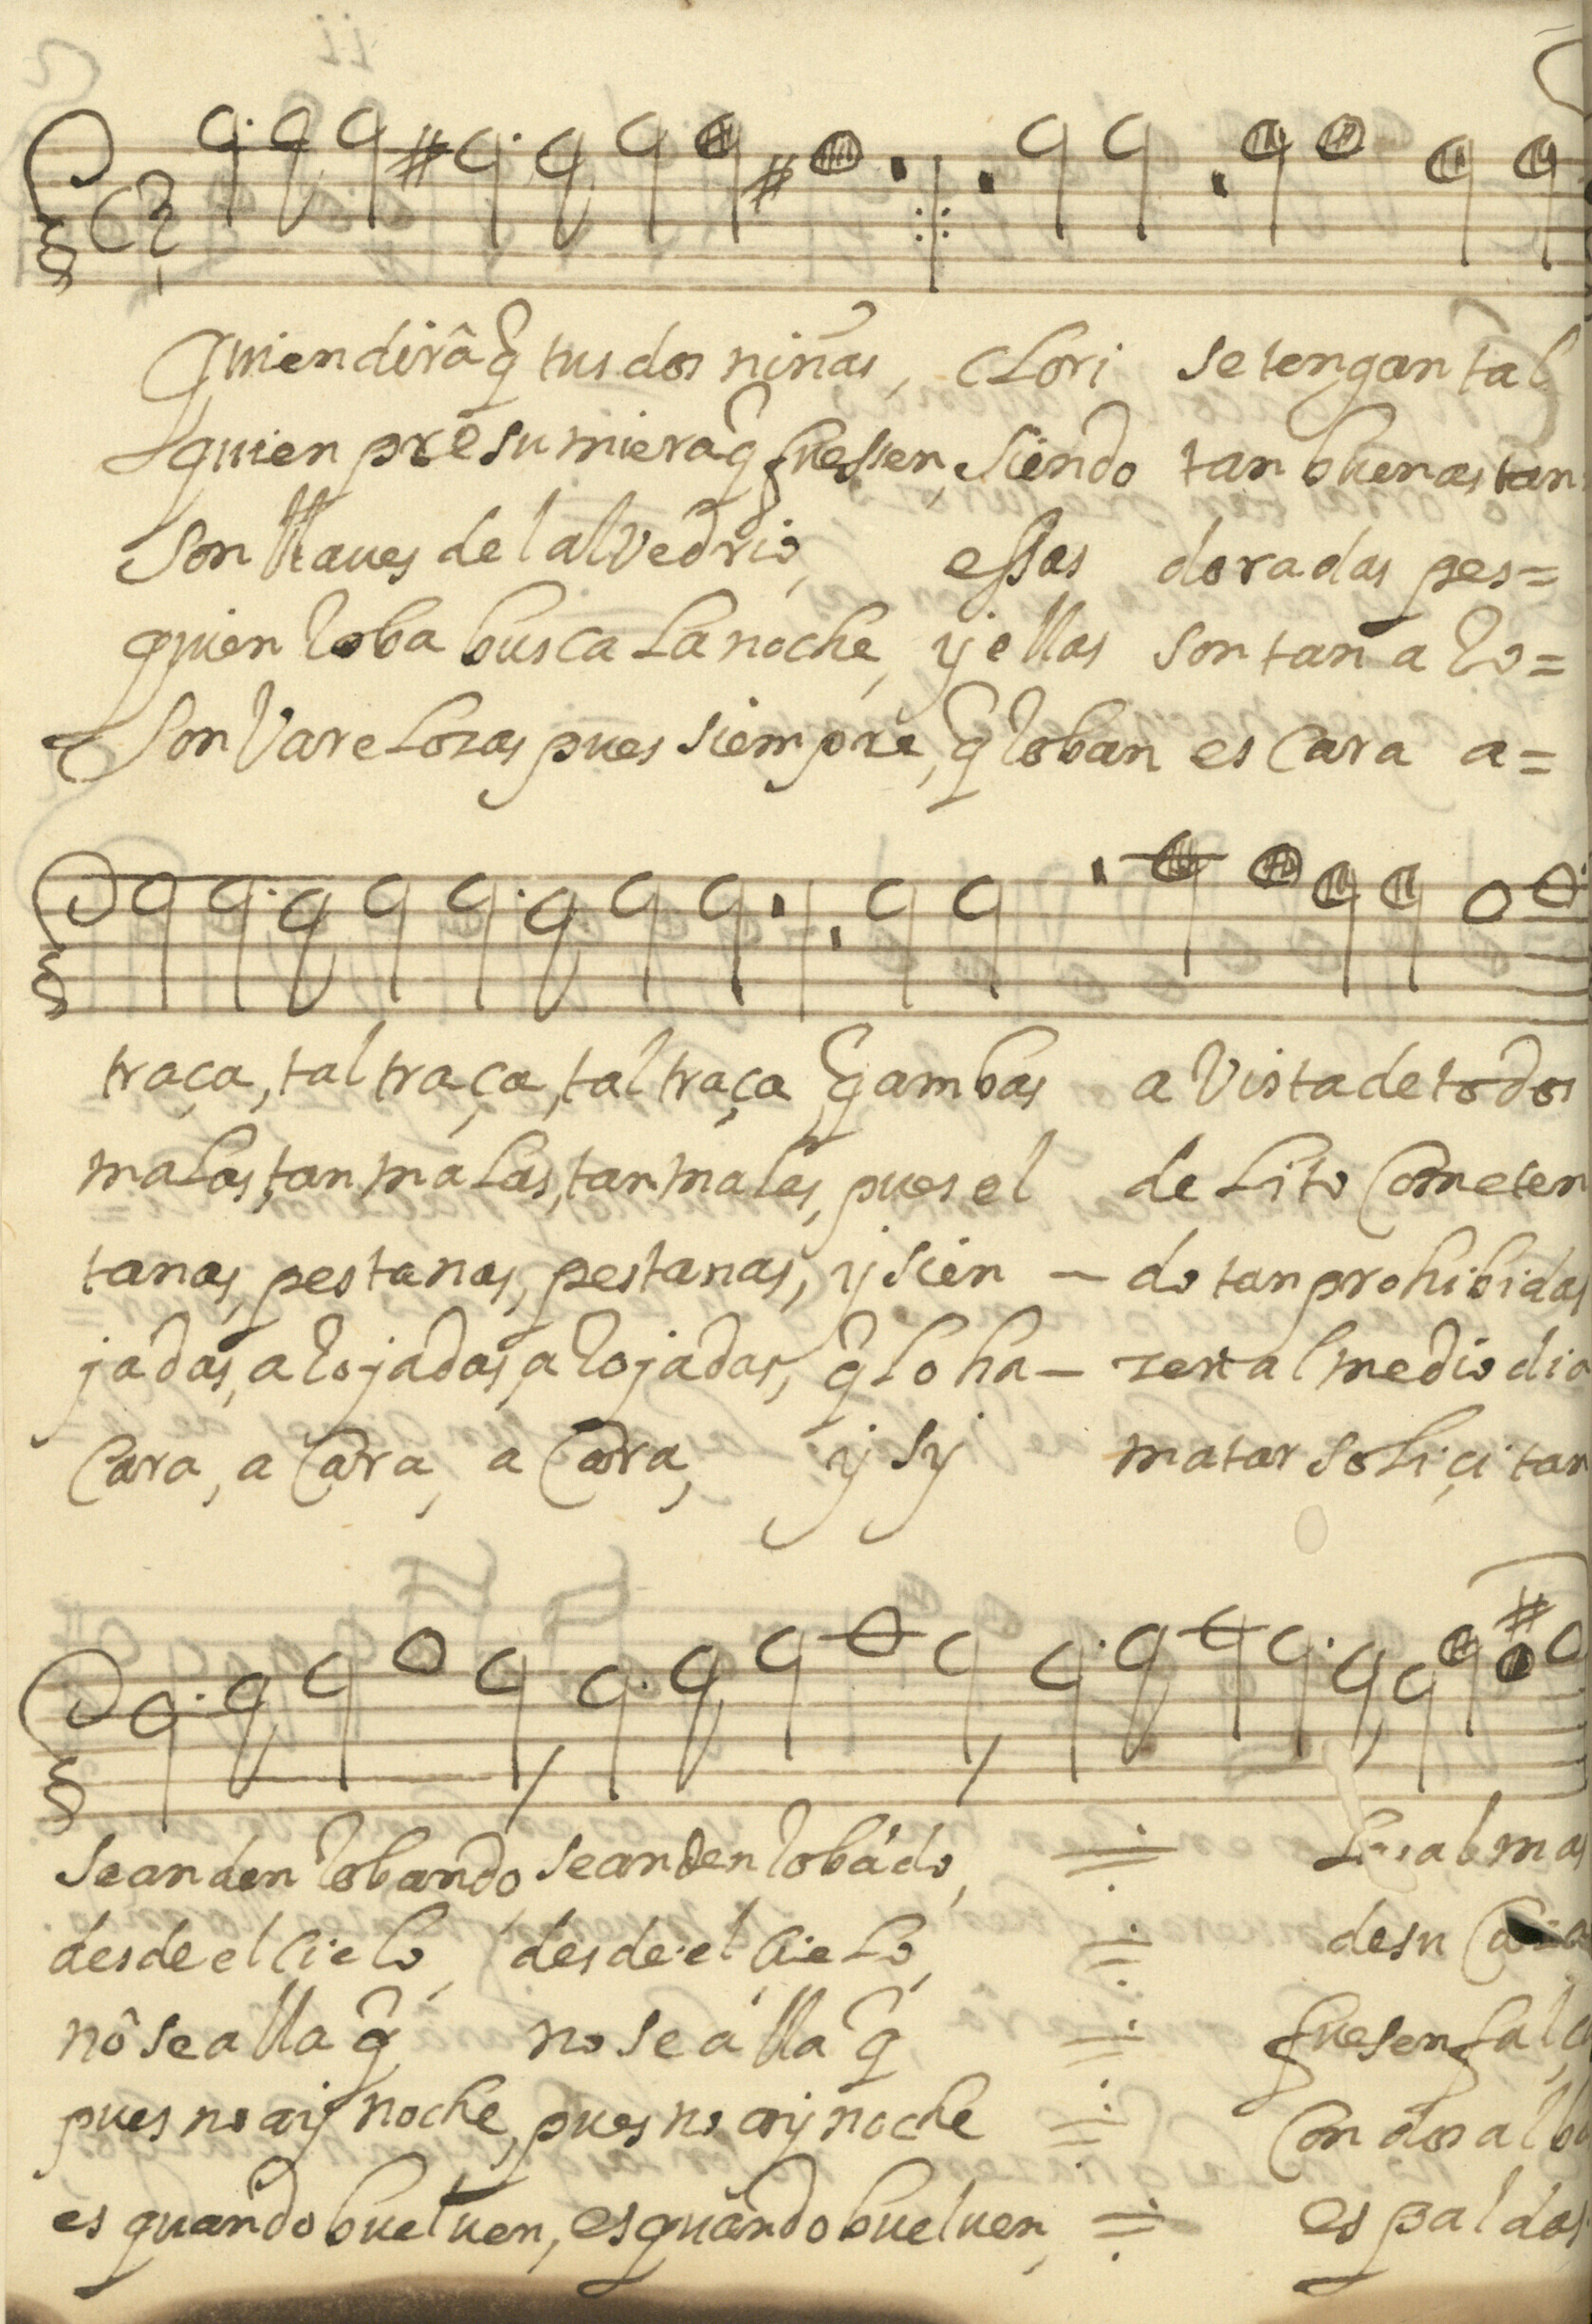 Quien dirâ q̃ tus dos niñas, Clori se tengan tal
quien presumiera q̃ fuessen, siendo tan buenas tan
Son llaues del alvedrio, essas doradas pes=
quien Roba busca la noche, y ellas son tan a Ro=
Son Vare Lozas pues siempre, q̃ Roban es Cara a=
traça, tal traça, tal traça q̃ ambas a Vista de todos
malas, tan malas, tan malas, pues el delito Cometen
tanas, pestanas, pestanas, y sien – do tan prohibidas
jadas, a Rojadas, a Rojadas, q̃ lo ha – zen al medio dia
Cara, a Cara, a Cara, y sy matar soliçitan
se anden Robando se anden Robādo, almas
desde el Cielo, desde el Cielo, desu
nô se alla q̃ no se alla q̃ fuesen
pues no ay noche, pues no ay noche Con dos
es quando buelven, es quando buelven, espaldas